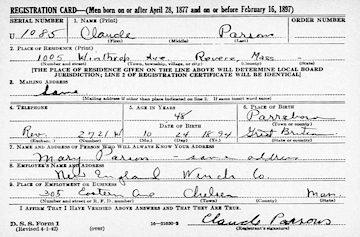 REGISTRATION CARD—(Men born on or after April 28, 1877 and on or before February 16, 1897)
SERIAL NUMBER 1. NAME (Print) ORDER NUMBER
U 1085 Claude Parson
(First) (Middle) (Last)
2. PLACE OF RESIDENCE (Print)
1005 Winthrop Ave Revere Mass
(Number and street) (Town, township, village, or city) (County) (State)
[THE PLACE OF RESIDENCE GIVEN ON THE LINE ABOVE WILL DETERMINE LOCAL BOARD
JURISDICTION; LINE 2 OF REGISTRATION CERTIFICATE WILL BE IDENTICAL]
3. MAILING ADDRESS
Same
[Mailing address if other than place indicated on line 2. If same insert word same]
4. TELEPHONE 5. AGE IN YEARS 6. PLACE OF BIRTH
48 Parrsboro
DATE OF BIRTH (Town or county)
Rev. 2721 W 10 24 1894 Great Britain
(Exchange) (Number) (Mo.) (Day) (Yr.) (State or country)
7. NAME AND ADDRESS OF PERSON WHO WILL ALWAYS KNOW YOUR ADDRESS
Mary Parson - same address
8. EMPLOYER'S NAME AND ADDRESS
New England Winch Co
9. PLACE OF EMPLOYMENT OR BUSINESS
305 Eastern Ave Chelsea Mass.
(Number and street or R. F. D. number) (Town) (County) (State)
I AFFIRM THAT I HAVE VERIFIED ABOVE ANSWERS AND THAT THEY ARE TRUE.
D. S. S. Form 1
(Revised 4-1-42) (over) Claude Parsons
(Registrant's signature)